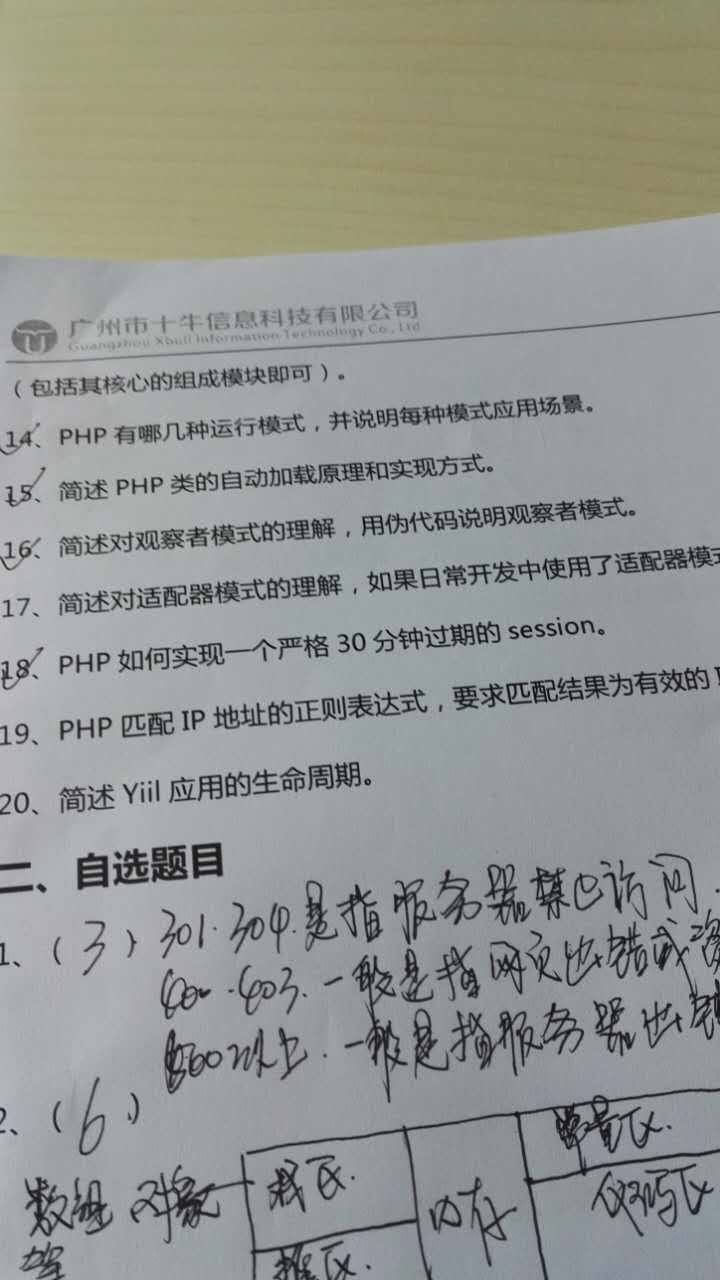 广州市十牛信息科技有限公司
Guangzhou Xbull Information Technology Co., Ltd
（包括其核心的组成模块即可）。
14、PHP 有哪几种运行模式，并说明每种模式应用场景。
15、简述 PHP 类的自动加载原理和实现方式。
16、简述对观察者模式的理解，用伪代码说明观察者模式。
17、简述对适配器模式的理解，如果日常开发中使用了适配器模式
18、PHP 如何实现一个严格 30 分钟过期的 session。
19、PHP 匹配 IP 地址的正则表达式，要求匹配结果为有效的
20、简述 YiiI 应用的生命周期。
二、自选题目
1、(3) 301. 304. 是指服务器禁止访问.
400. 403. 一般是指网页出错或
500以上. 一般是指服务器出错
2、(6)
常量区.
数组 对象 栈区. 内存 代码区
等 堆区.